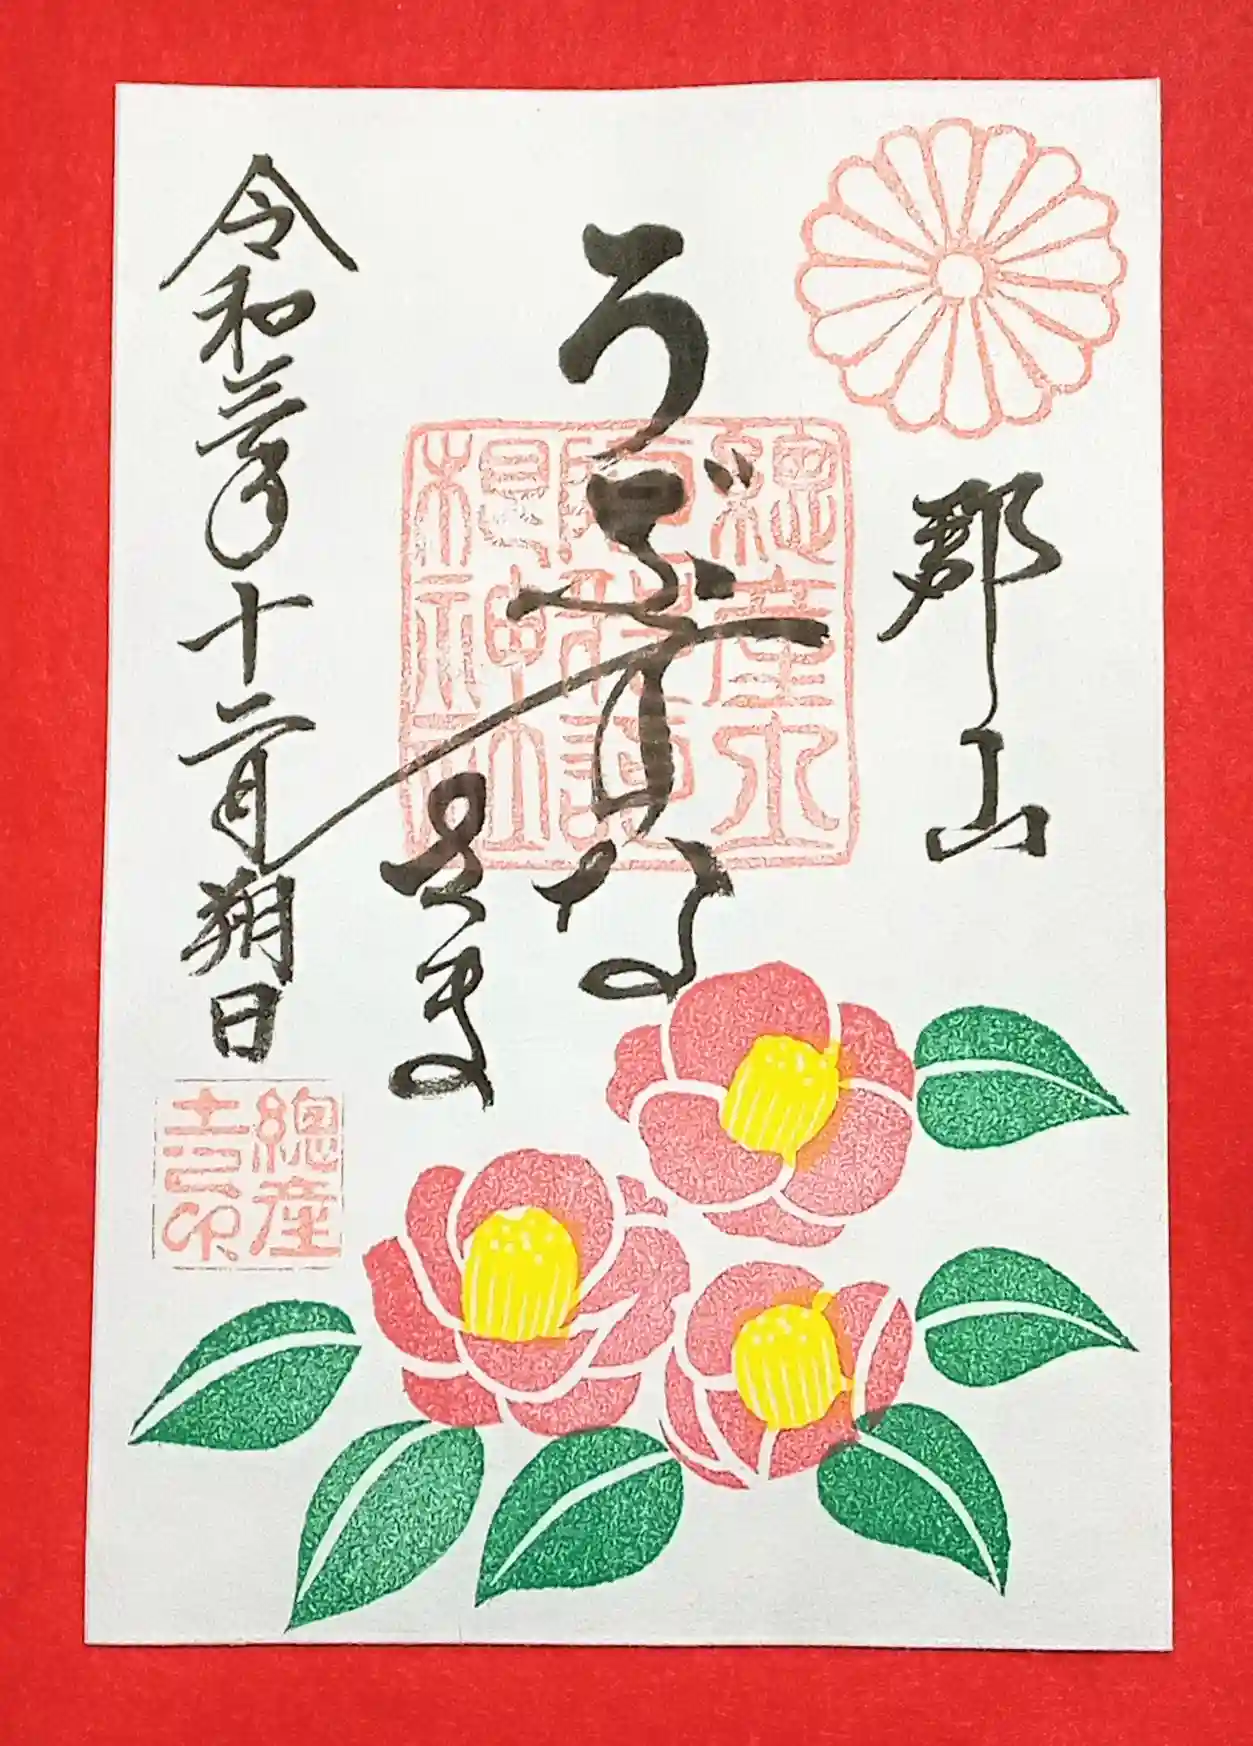 郡山
うぶすな
さま
令和三年十二月朔日
總産土
總産
土之印